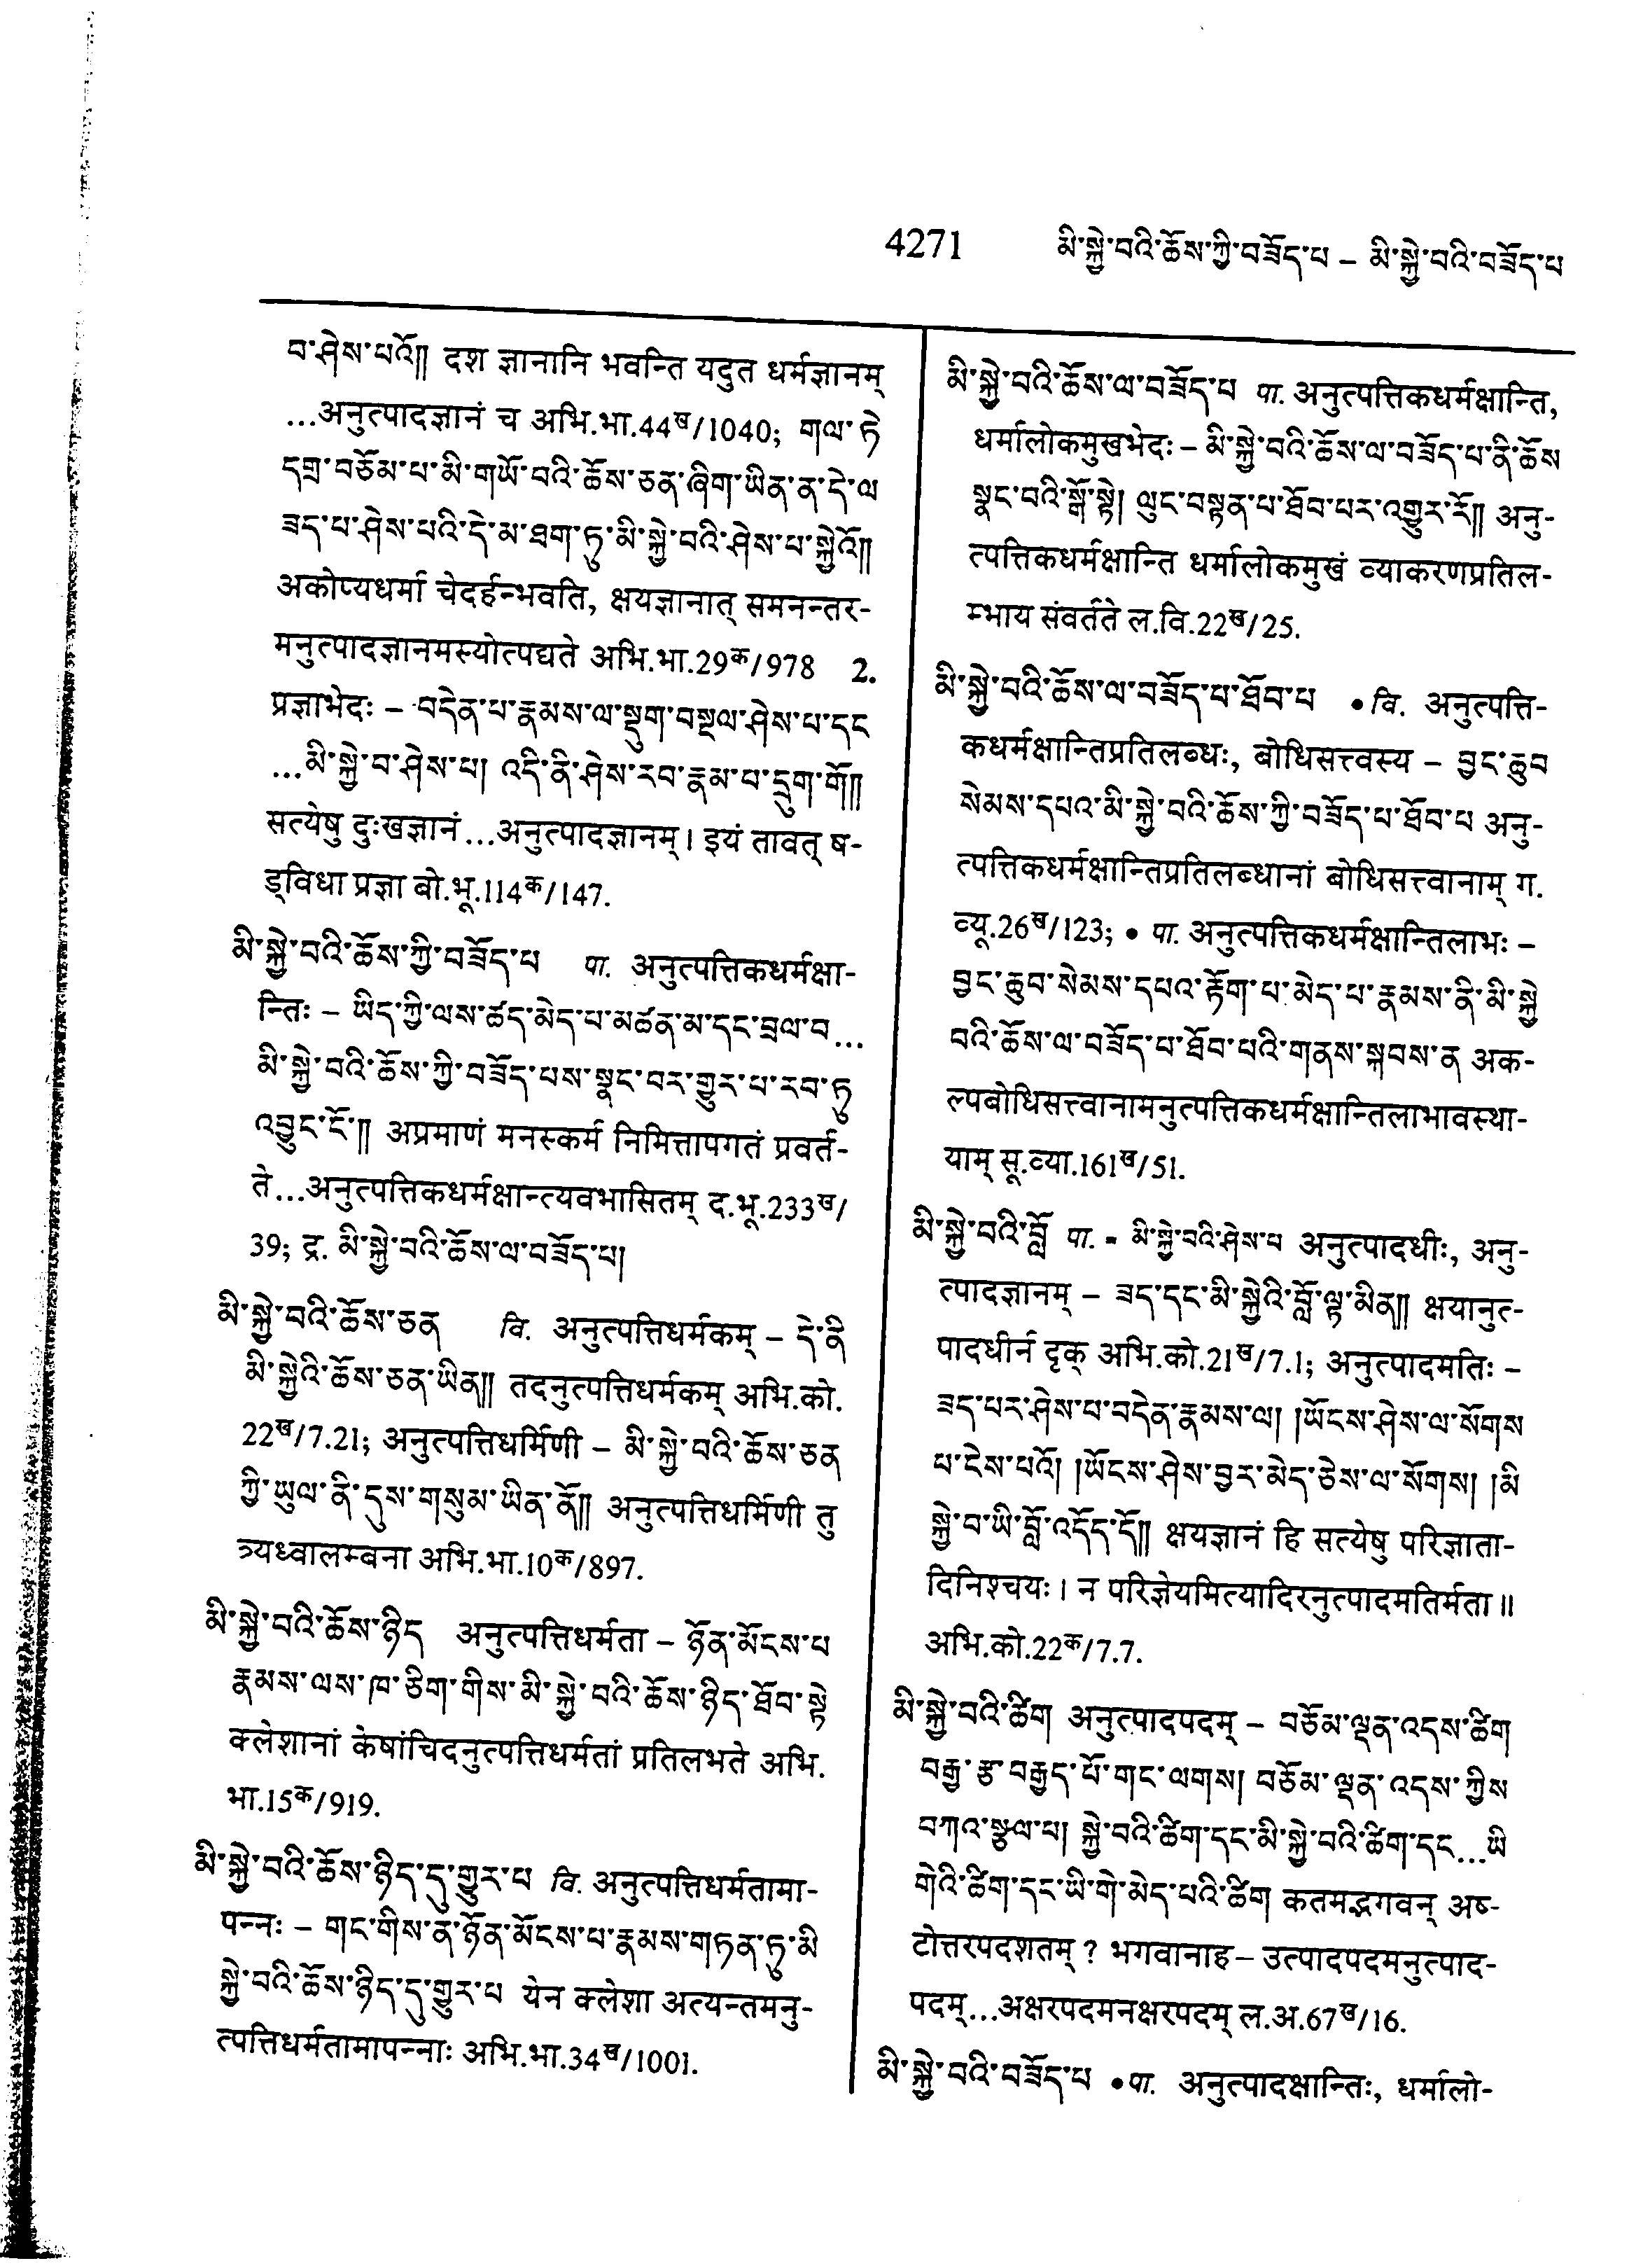 4271 མི་སྐྱེ་བའི་ཆོས་ཀྱི་བཟོད་པ – མི་སྐྱེ་བའི་བཟོད་པ
བ་ཤེས་པའོ།། दश ज्ञानानि भवन्ति यदुत धर्मज्ञानम्
...अनुत्पादज्ञानं च अभि.भा.44ख/1040; གལ་ཏེ
དགྲ་བཅོམ་པ་མི་གཡོ་བའི་ཆོས་ཅན་ཞིག་ཡིན་ན་དེ་ལ
ཟད་པ་ཤེས་པའི་དེ་མ་ཐག་ཏུ་མི་སྐྱེ་བའི་ཤེས་པ་སྐྱེའོ།།
अकोप्यधर्मा चेदर्हन्भवति, क्षयज्ञानात् समनन्तर-
मनुत्पादज्ञानमस्योत्पद्यते अभि.भा.29क/978 2.
प्रज्ञाभेदः – བདེན་པ་རྣམས་ལ་སྡུག་བསྔལ་ཤེས་པ་དང
...མི་སྐྱེ་བ་ཤེས་པ། འདི་ནི་ཤེས་རབ་རྣམ་པ་དྲུག་གོ།།
सत्येषु दुःखज्ञानं...अनुत्पादज्ञानम्। इयं तावत् ष-
ड्विधा प्रज्ञा बो.भू.114क/147.
མི་སྐྱེ་བའི་ཆོས་ཀྱི་བཟོད་པ पा. अनुत्पत्तिकधर्मक्षा-
न्तिः – ཡིད་ཀྱི་ལས་ཚད་མེད་པ་མཚན་མ་དང་བྲལ་བ...
མི་སྐྱེ་བའི་ཆོས་ཀྱི་བཟོད་པས་སྣང་བར་གྱུར་པ་རབ་ཏུ
འབྱུང་ངོ་།། अप्रमाणं मनस्कर्म निमित्तापगतं प्रवर्त-
ते...अनुत्पत्तिकधर्मक्षान्त्यवभासितम् द.भू.233ख/
39; द्र. མི་སྐྱེ་བའི་ཆོས་ལ་བཟོད་པ།
མི་སྐྱེ་བའི་ཆོས་ཅན वि. अनुत्पत्तिधर्मकम् – དེ་ནི
མི་སྐྱེའི་ཆོས་ཅན་ཡིན།། तदनुत्पत्तिधर्मकम् अभि.को.
22ख/7.21; अनुत्पत्तिधर्मिणी – མི་སྐྱེ་བའི་ཆོས་ཅན
ཀྱི་ཡུལ་ནི་དུས་གསུམ་ཡིན་ནོ།། अनुत्पत्तिधर्मिणी तु
त्र्यध्वालम्बना अभि.भा.10क/897.
མི་སྐྱེ་བའི་ཆོས་ཉིད अनुत्पत्तिधर्मता – ཉོན་མོངས་པ
རྣམས་ལས་ཁ་ཅིག་གིས་མི་སྐྱེ་བའི་ཆོས་ཉིད་ཐོབ་སྟེ
क्लेशानां केषांचिदनुत्पत्तिधर्मतां प्रतिलभते अभि.
भा.15क/919.
མི་སྐྱེ་བའི་ཆོས་ཉིད་དུ་གྱུར་པ वि. अनुत्पत्तिधर्मतामा-
पन्नः – གང་གིས་ན་ཉོན་མོངས་པ་རྣམས་གཏན་ཏུ་མི
སྐྱེ་བའི་ཆོས་ཉིད་དུ་གྱུར་པ येन क्लेशा अत्यन्तमनु-
त्पत्तिधर्मतामापन्नाः अभि.भा.34ख/1001.
མི་སྐྱེ་བའི་ཆོས་ལ་བཟོད་པ पा. अनुत्पत्तिकधर्मक्षान्ति,
धर्मालोकमुखभेदः – མི་སྐྱེ་བའི་ཆོས་ལ་བཟོད་པ་ནི་ཆོས
སྣང་བའི་སྒོ་སྟེ། ལུང་བསྟན་པ་ཐོབ་པར་འགྱུར་རོ།། अनु-
त्पत्तिकधर्मक्षान्ति धर्मालोकमुखं व्याकरणप्रतिल-
म्भाय संवर्तते ल.वि.22ख/25.
མི་སྐྱེ་བའི་ཆོས་ལ་བཟོད་པ་ཐོབ་པ • वि. अनुत्पत्ति-
कधर्मक्षान्तिप्रतिलब्धः, बोधिसत्त्वस्य – བྱང་ཆུབ
སེམས་དཔའ་མི་སྐྱེ་བའི་ཆོས་ཀྱི་བཟོད་པ་ཐོབ་པ अनु-
त्पत्तिकधर्मक्षान्तिप्रतिलब्धानां बोधिसत्त्वानाम् ग.
व्यू.26ख/123; • पा. अनुत्पत्तिकधर्मक्षान्तिलाभः –
བྱང་ཆུབ་སེམས་དཔའ་རྟོག་པ་མེད་པ་རྣམས་ནི་མི་སྐྱེ
བའི་ཆོས་ལ་བཟོད་པ་ཐོབ་པའི་གནས་སྐབས་ན अक-
ल्पबोधिसत्त्वानामनुत्पत्तिकधर्मक्षान्तिलाभावस्था-
याम् सू.व्या.161ख/51.
མི་སྐྱེ་བའི་བློ पा. = མི་སྐྱེ་བའི་ཤེས་པ अनुत्पादधीः, अनु-
त्पादज्ञानम् – ཟད་དང་མི་སྐྱེའི་བློ་ལྟ་མིན།། क्षयानुत्-
पादधीर्न दृक् अभि.को.21ख/7.1; अनुत्पादमतिः –
ཟད་པར་ཤེས་པ་བདེན་རྣམས་ལ། །ཡོངས་ཤེས་ལ་སོགས
པ་ངེས་པའོ། །ཡོངས་ཤེས་བྱར་མེད་ཅེས་ལ་སོགས། །མི
སྐྱེ་བ་ཡི་བློ་འདོད་དོ།། क्षयज्ञानं हि सत्येषु परिज्ञाता-
दिनिश्चयः। न परिज्ञेयमित्यादिरनुत्पादमतिर्मता॥
अभि.को.22क/7.7.
མི་སྐྱེ་བའི་ཚིག अनुत्पादपदम् – བཅོམ་ལྡན་འདས་ཚིག
བརྒྱ་རྩ་བརྒྱད་པོ་གང་ལགས། བཅོམ་ལྡན་འདས་ཀྱིས
བཀའ་སྩལ་པ། སྐྱེ་བའི་ཚིག་དང་མི་སྐྱེ་བའི་ཚིག་དང...ཡི
གེའི་ཚིག་དང་ཡི་གེ་མེད་པའི་ཚིག कतमद्भगवन् अष्-
टोत्तरपदशतम्? भगवानाह – उत्पादपदमनुत्पाद-
पदम्...अक्षरपदमनक्षरपदम् ल.अ.67ख/16.
མི་སྐྱེ་བའི་བཟོད་པ • पा. अनुत्पादक्षान्तिः, धर्मालो-